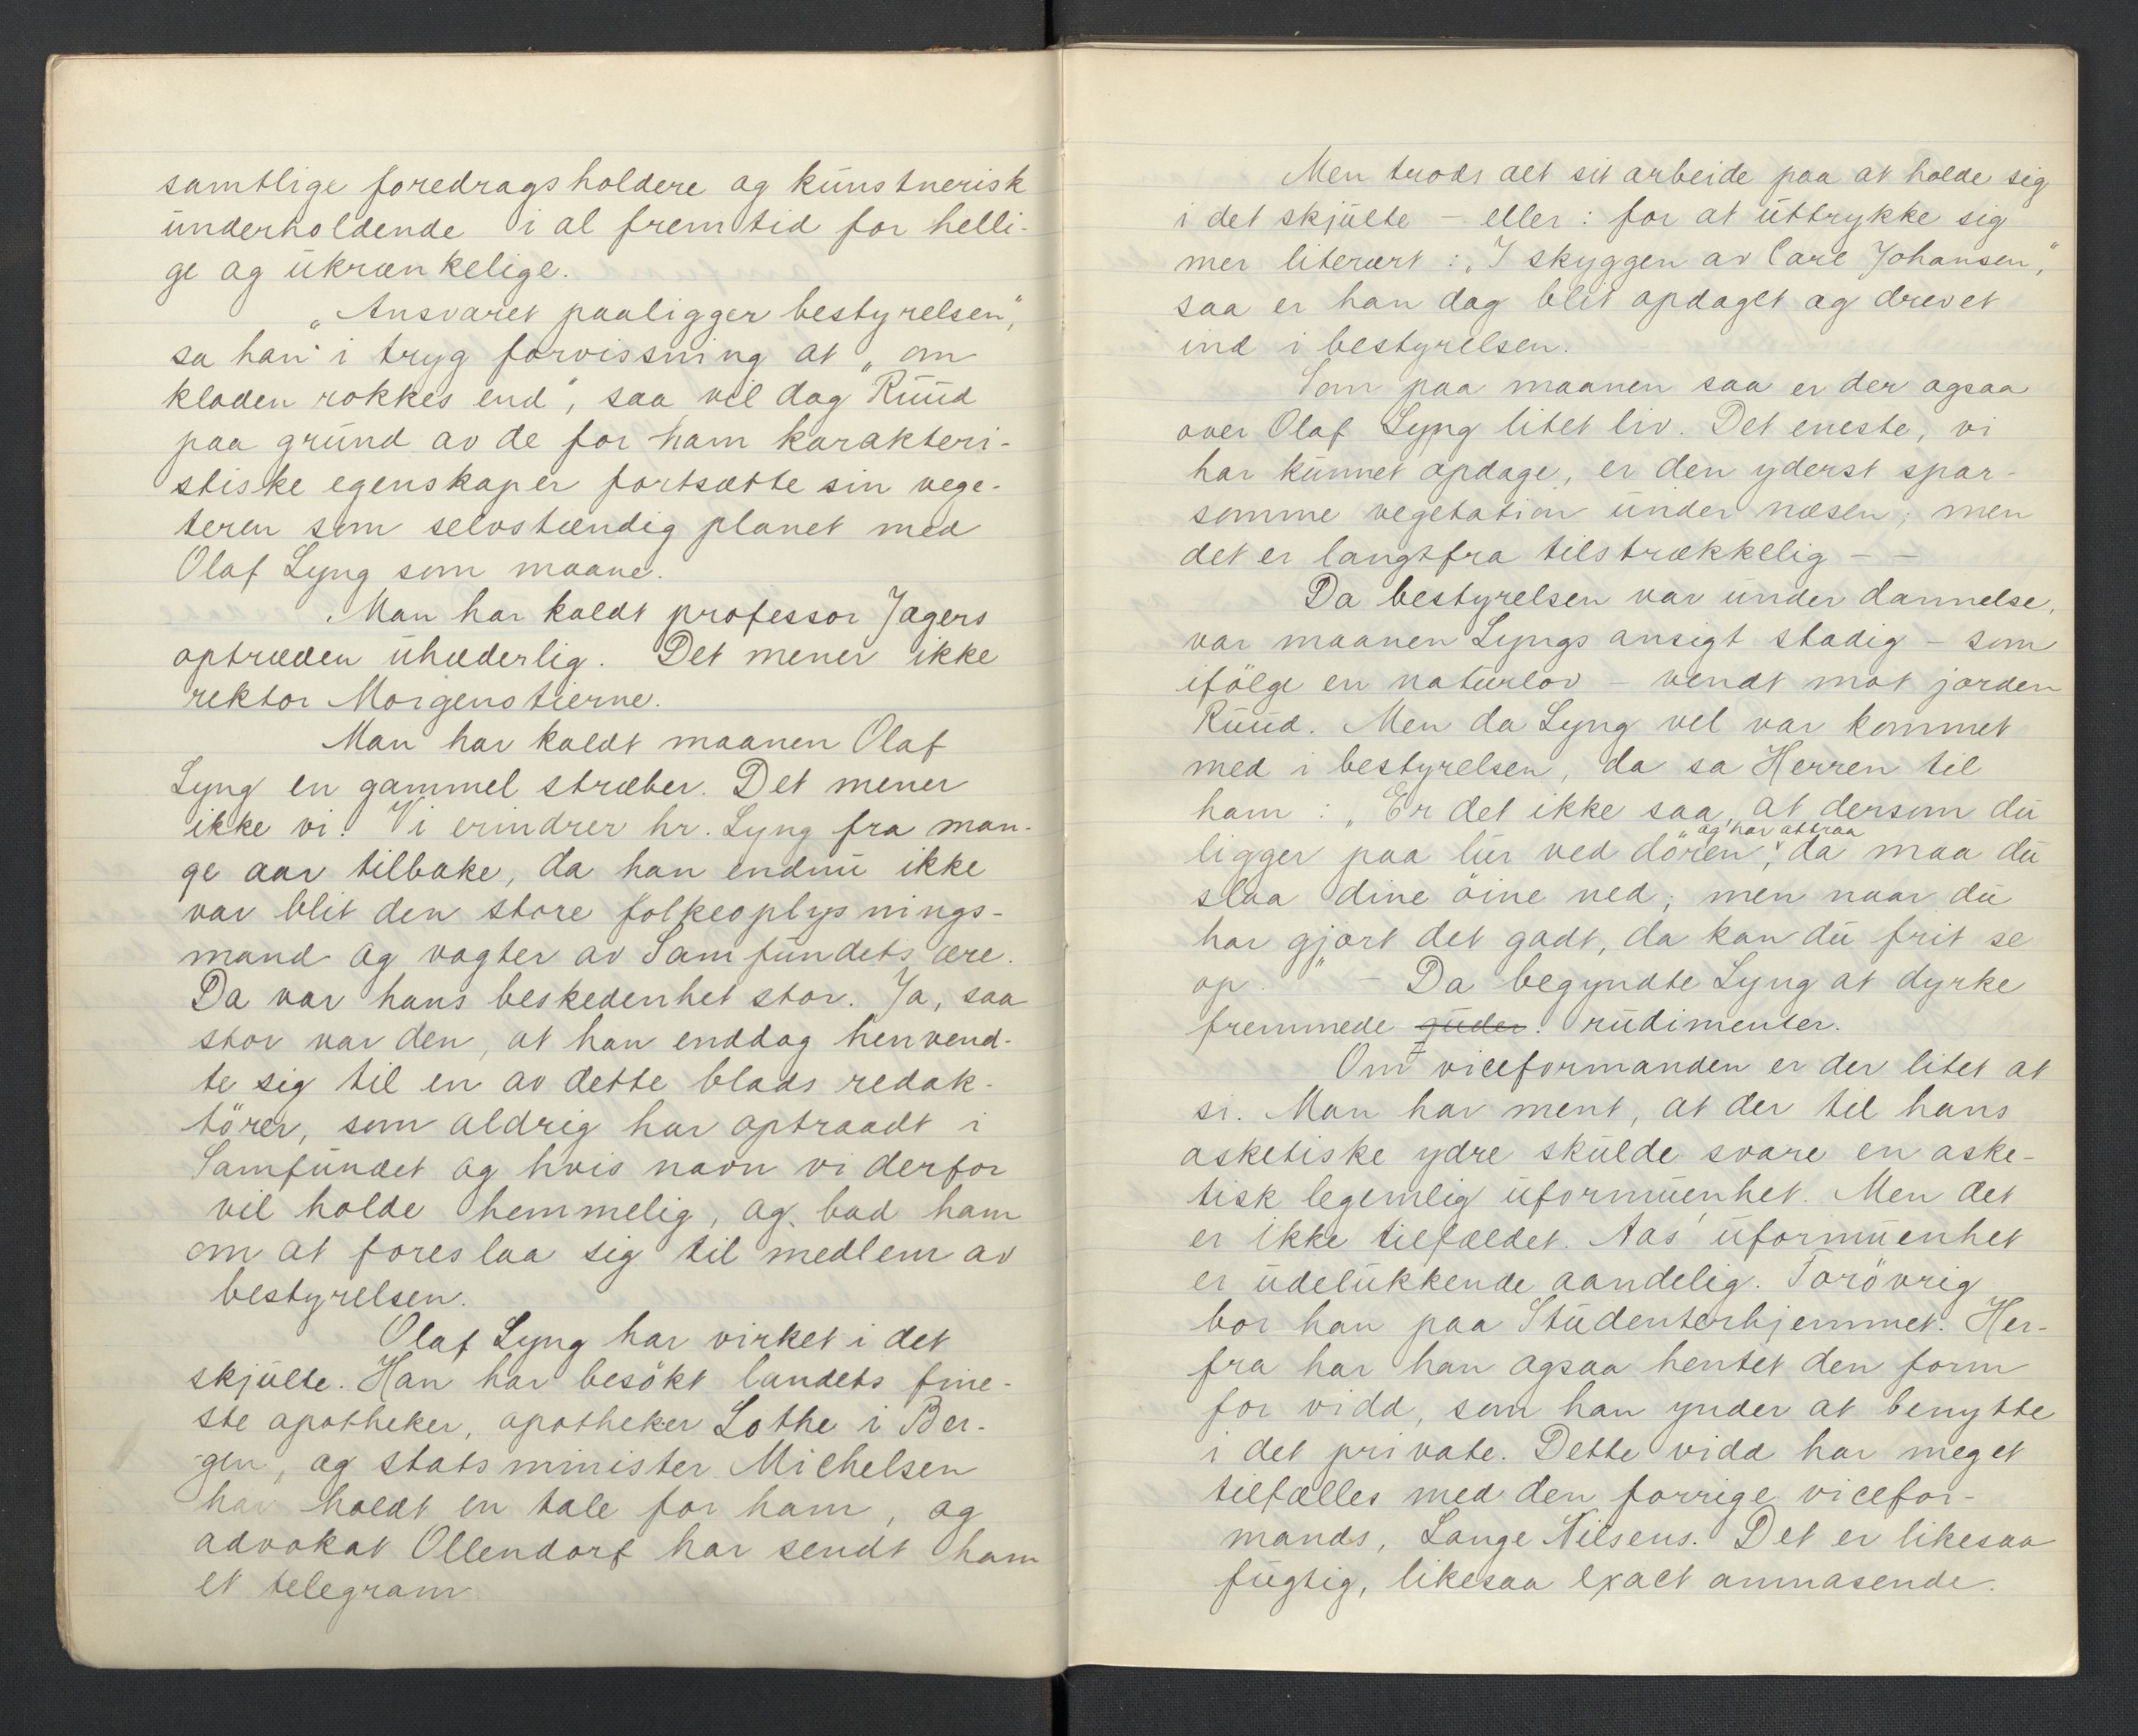 samtlige foredragsholdere og kunstnerisk
underholdende i al fremtid for helli-
ge og ukrænkelige.
„Ansvaret paaligger bestyrelsen",
sa han i tryg forvissning at „om
kloden rokkes end", saa vil dog Ruud
paa grund av de for ham karakteri-
stiske egenskaper fortsætte sin vege-
teren som selvstændig planet med
Olaf Lyng som maane.
Man har kaldt professor Jagers
optræden uhæderlig. Det mener ikke
rektor Morgenstierne.
Man har kaldt maanen Olaf
Lyng en gammel stræber. Det mener
ikke vi. Vi erindrer hr. Lyng fra man-
ge aar tilbake, da han endnu ikke
var blit den store folkeoplysnings-
mand og vogter av Samfundets ære.
Da var hans beskedenhet stor. Ja, saa
stor var den, at han enddog henvend-
te sig til en av dette blads redak-
tører, som aldrig har optraadt i
Samfundet og hvis navn vi derfor
vil holde hemmelig, og bad ham
om at foreslaa sig til medlem av
bestyrelsen.
Olaf Lyng har virket i det
skjulte. Han har besökt landets fine-
ste apotheker, apotheker Lothe i Ber-
gen, og statsminister Michelsen
har holdt en tale for ham, og
advokat Ollendorf har sendt ham
et telegram.
Men trods alt sit arbeide paa at holde sig
i det skjulte – eller: for at uttrykke sig
mer literært: „I skyggen av Carl Johansen",
saa er han dog blit opdaget og drevet
ind i bestyrelsen.
Som paa maanen saa er der ogsaa
over Olaf Lyng litet liv. Det eneste, vi
har kunnet opdage, er den yderst spar-
somme vegetation under næsen; men
det er langtfra tilstrækkelig – –
Da bestyrelsen var under dannelse,
var maanen Lyngs ansigt stadig – som
ifölge en naturlov – vendt mot jorden
Ruud. Men da Lyng vel var kommet
med i bestyrelsen, da sa Herren til
ham: „Er det ikke saa, at dersom du
„og har attraa
ligger paa lur ved dören", da maa du
slaa dine öine ned; men naar du
har gjort det godt, da kan du frit se
op." – Da begyndte Lyng at dyrke
fremmede guder: rudimenter.
Om viceformanden er der litet at
si. Man har ment, at der til hans
asketiske ydre skulde svare en aske-
tisk legemlig uformuenhet. Men det
er ikke tilfældet. Aas' uformuenhet
er udelukkende aandelig. Forövrig
bor han paa Studenterhjemmet. Her-
fra har han ogsaa hentet den form
for vidd, som han ynder at benytte
i det private. Dette vidd har meget
tilfælles med den forrige vicefor-
mands, Lange Nilsens. Det er likesaa
fugtig, likesaa exact anmasende.